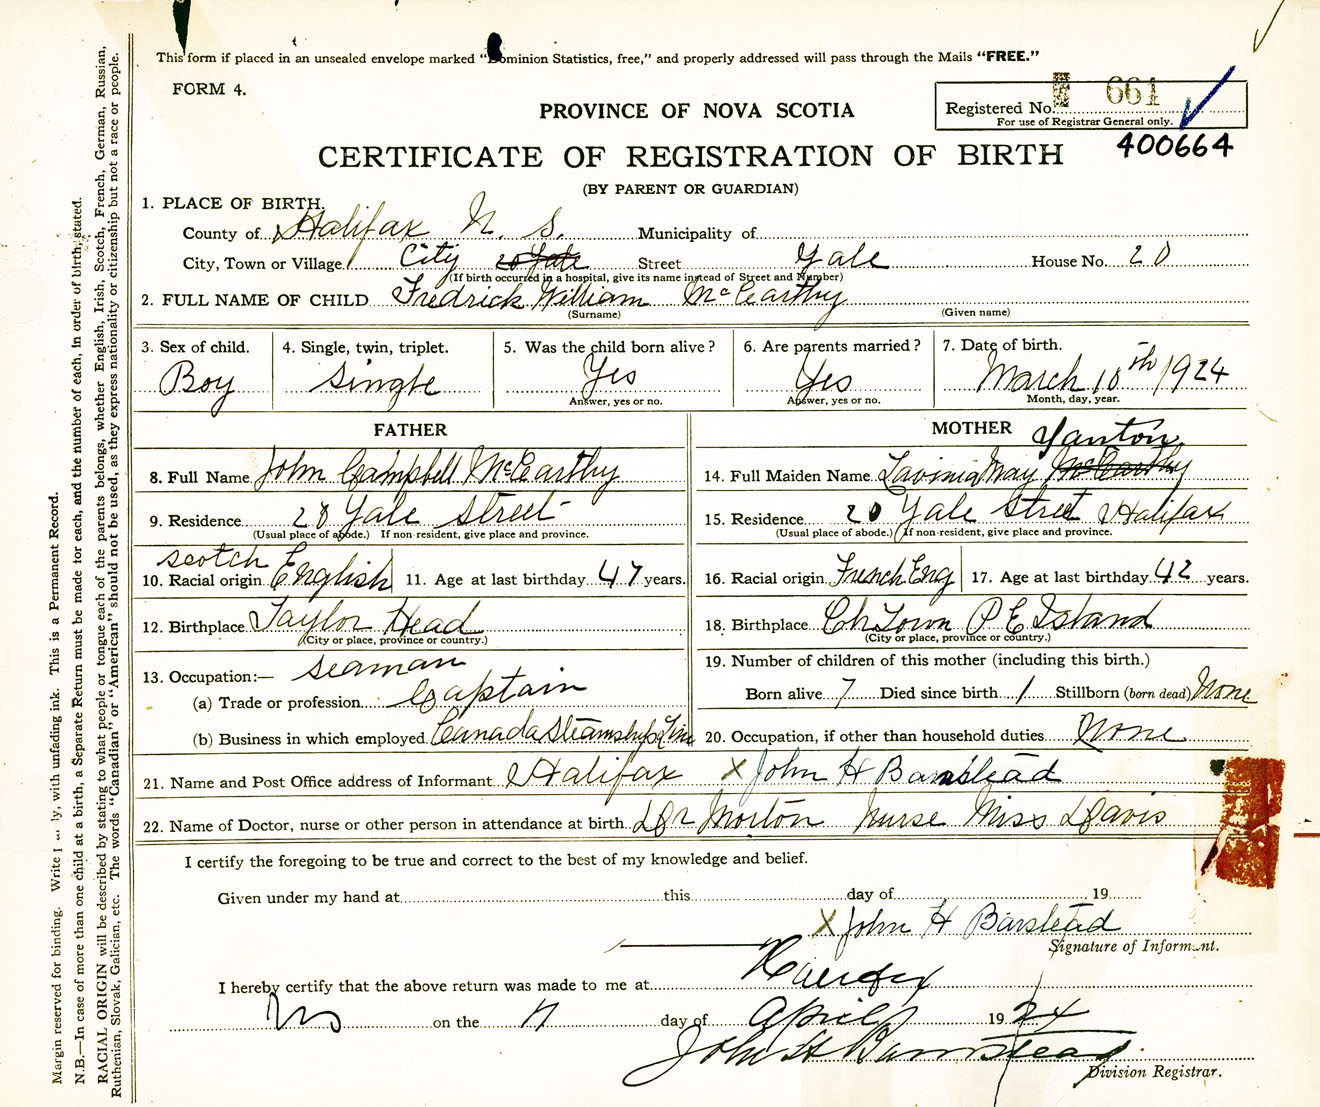 This form if placed in an unsealed envelope marked "Dominion Statistics, free," and properly addressed will pass through the Mails "FREE."
FORM 4.
Registered No. 661
For use of Registrar General only.
PROVINCE OF NOVA SCOTIA
400664
CERTIFICATE OF REGISTRATION OF BIRTH
(BY PARENT OR GUARDIAN)
1. PLACE OF BIRTH.
County of Halifax N. S. Municipality of
City, Town or Village City 20 Yale Street Yale House No. 20
(If birth occurred in a hospital, give its name instead of Street and Number)
2. FULL NAME OF CHILD Fredrick William McCearthy
(Surname) (Given name)
3. Sex of child. 4. Single, twin, triplet. 5. Was the child born alive? 6. Are parents married? 7. Date of birth.
Boy Single Yes Yes March 10th 1924
Answer, yes or no. Answer, yes or no. Month, day, year.
FATHER
8. Full Name John Campbell McCearthy
9. Residence 20 Yale Street
(Usual place of abode.) If non-resident, give place and province.
Scotch
10. Racial origin English 11. Age at last birthday 47 years.
12. Birthplace Taylor Head
(City or place, province or country.)
13. Occupation:— Seaman
(a) Trade or profession Captain
(b) Business in which employed Canada Steamship Line
MOTHER Yanton
14. Full Maiden Name Lavinia May McCearthy
15. Residence 20 Yale Street Halifax
(Usual place of abode.) If non-resident, give place and province.
16. Racial origin French Eng 17. Age at last birthday 42 years.
18. Birthplace Ch Town P E Island
(City or place, province or country.)
19. Number of children of this mother (including this birth.)
Born alive 7 Died since birth 1 Stillborn (born dead) None
20. Occupation, if other than household duties None
21. Name and Post Office address of Informant Halifax X John H Barnstead
22. Name of Doctor, nurse or other person in attendance at birth Dr Morton Nurse Miss Davis
I certify the foregoing to be true and correct to the best of my knowledge and belief.
Given under my hand at this day of 19
X John H Barnstead
Signature of Informant.
I hereby certify that the above return was made to me at Halifax
NS on the 17 day of April 1924
John H Barnstead
Division Registrar.
Margin reserved for binding. Write ly, with unfading ink. This is a Permanent Record.
N.B.—In case of more than one child at a birth, a Separate Return must be made for each, and the number of each, in order of birth, stated.
RACIAL ORIGIN will be described by stating to what people or tongue each of the parents belongs, whether English, Irish, Scotch, French, German, Russian,
Ruthenian, Slovak, Galician, etc. The words "Canadian" or "American" should not be used, as they express nationality or citizenship but not a race or people.